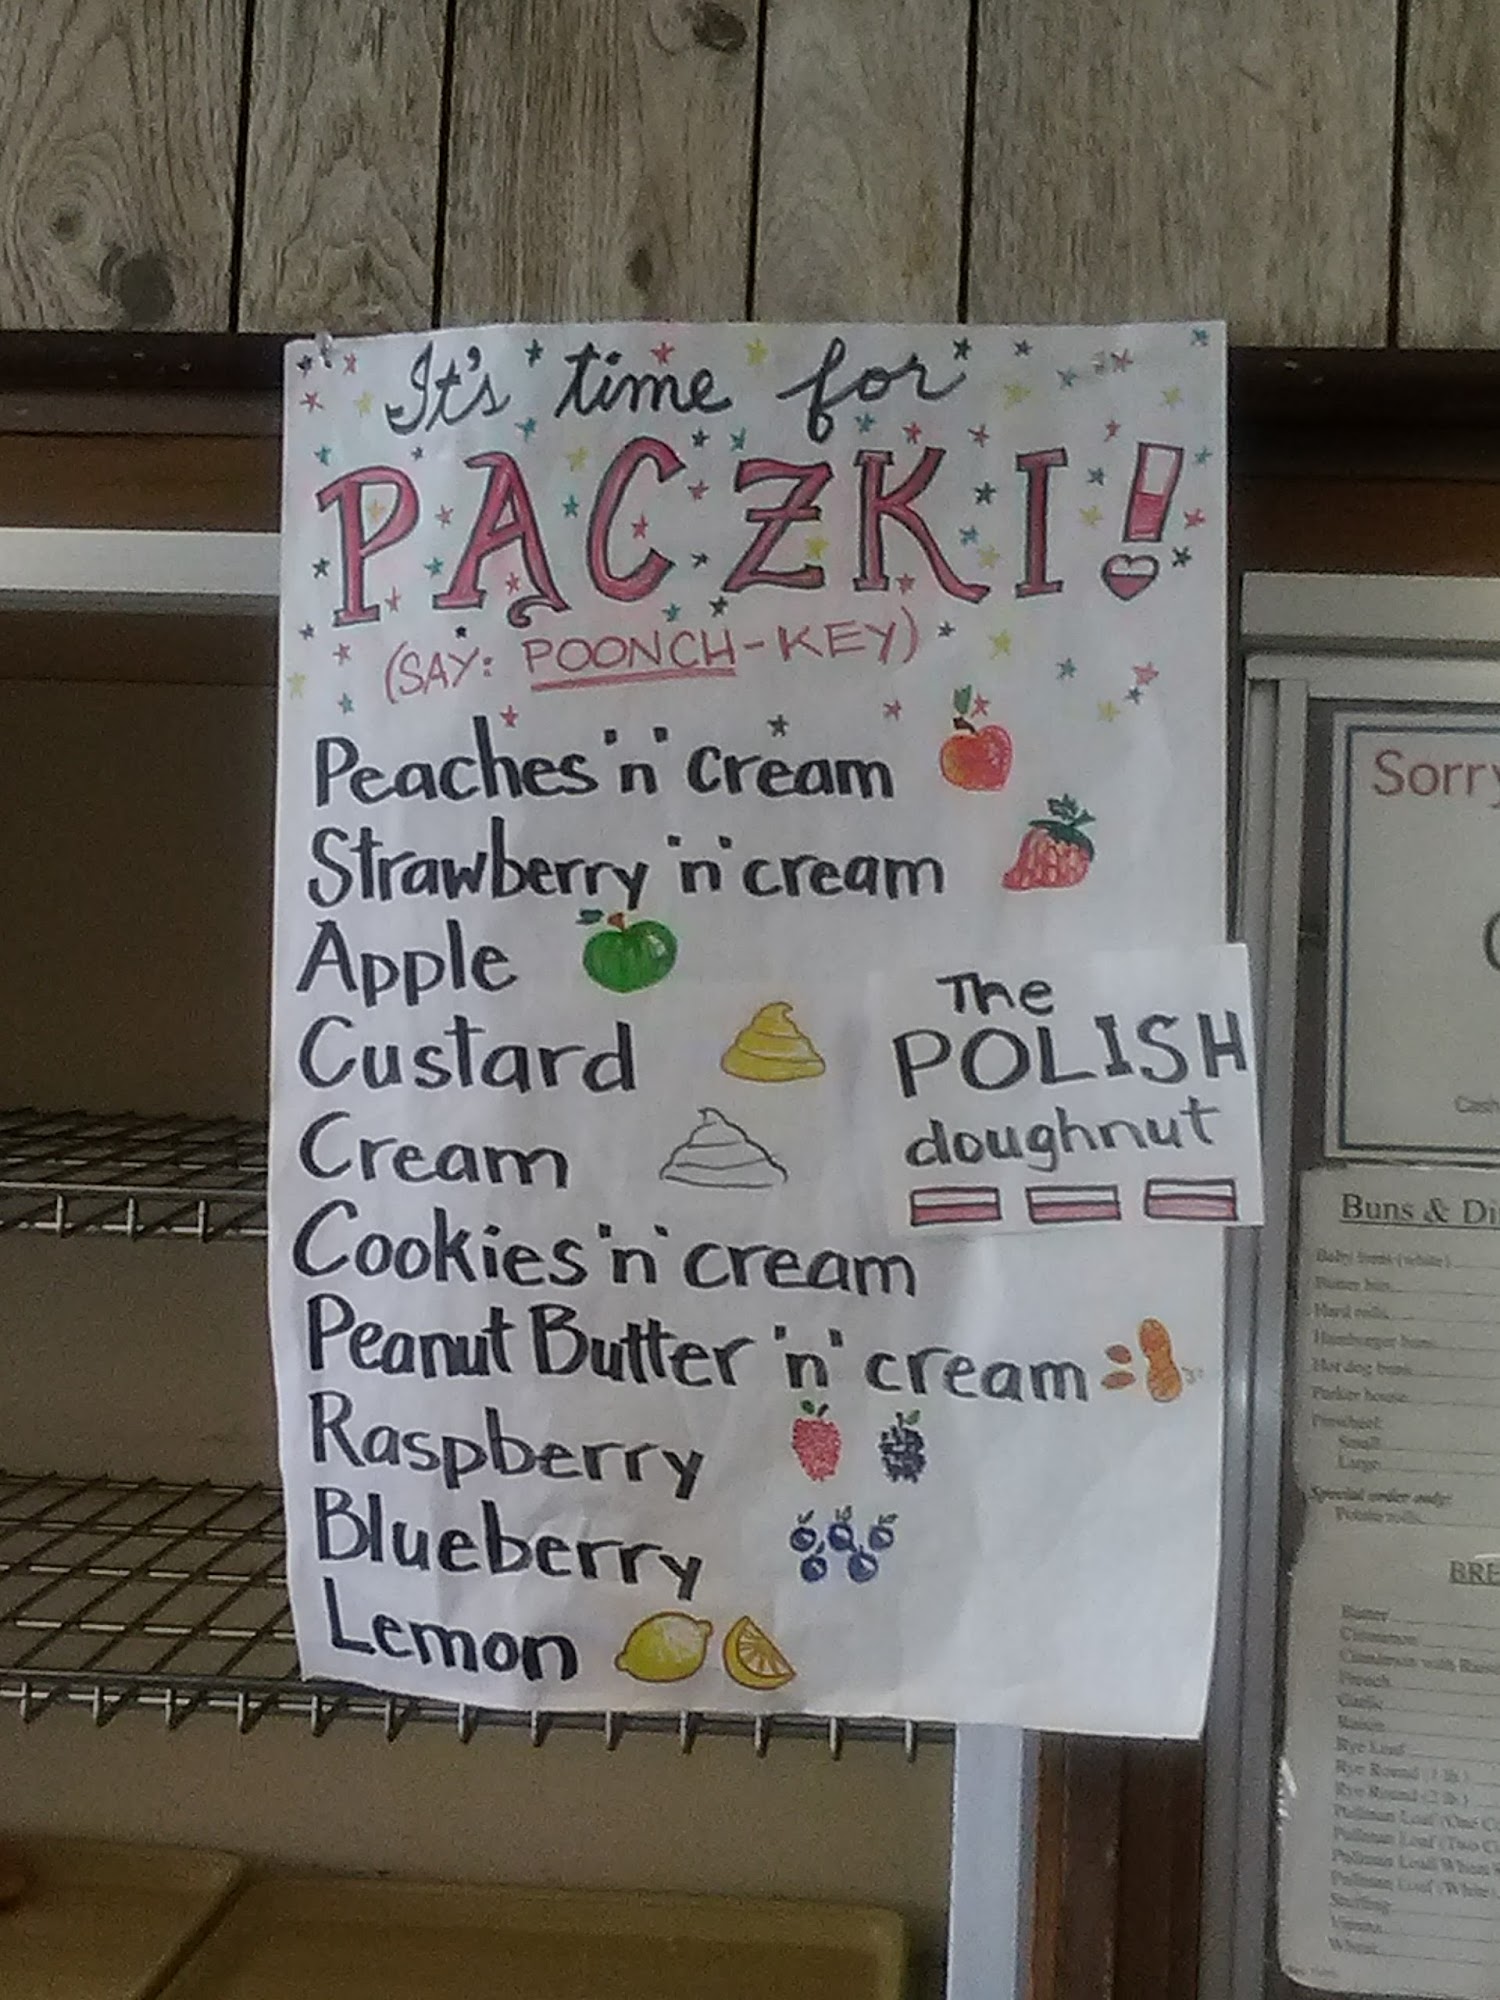 It's time for
PĄCZKI!
(SAY: POONCH-KEY)
Peaches 'n' cream
Strawberry 'n' cream
Apple
Custard
Cream
Cookies 'n' cream
Peanut Butter 'n' cream
Raspberry
Blueberry
Lemon
The
POLISH
doughnut
Sorry
Cash
Buns & Di
Baby buns (white)
Butter bun
Hard rolls
Hamburger buns
Hot dog buns
Parker house
Pinwheel:
Small
Large
Special order only:
Potato rolls
BRE
Butter
Cinnamon
Cinnamon with Raisi
French
Garlic
Raisin
Rye Loaf
Rye Round (1 lb.)
Rye Round (2 lb.)
Pullman Loaf (One C
Pullman Loaf (Two C
Pullman Loaf Wheat
Pullman Loaf (White)
Stuffing
Vienna
Wheat